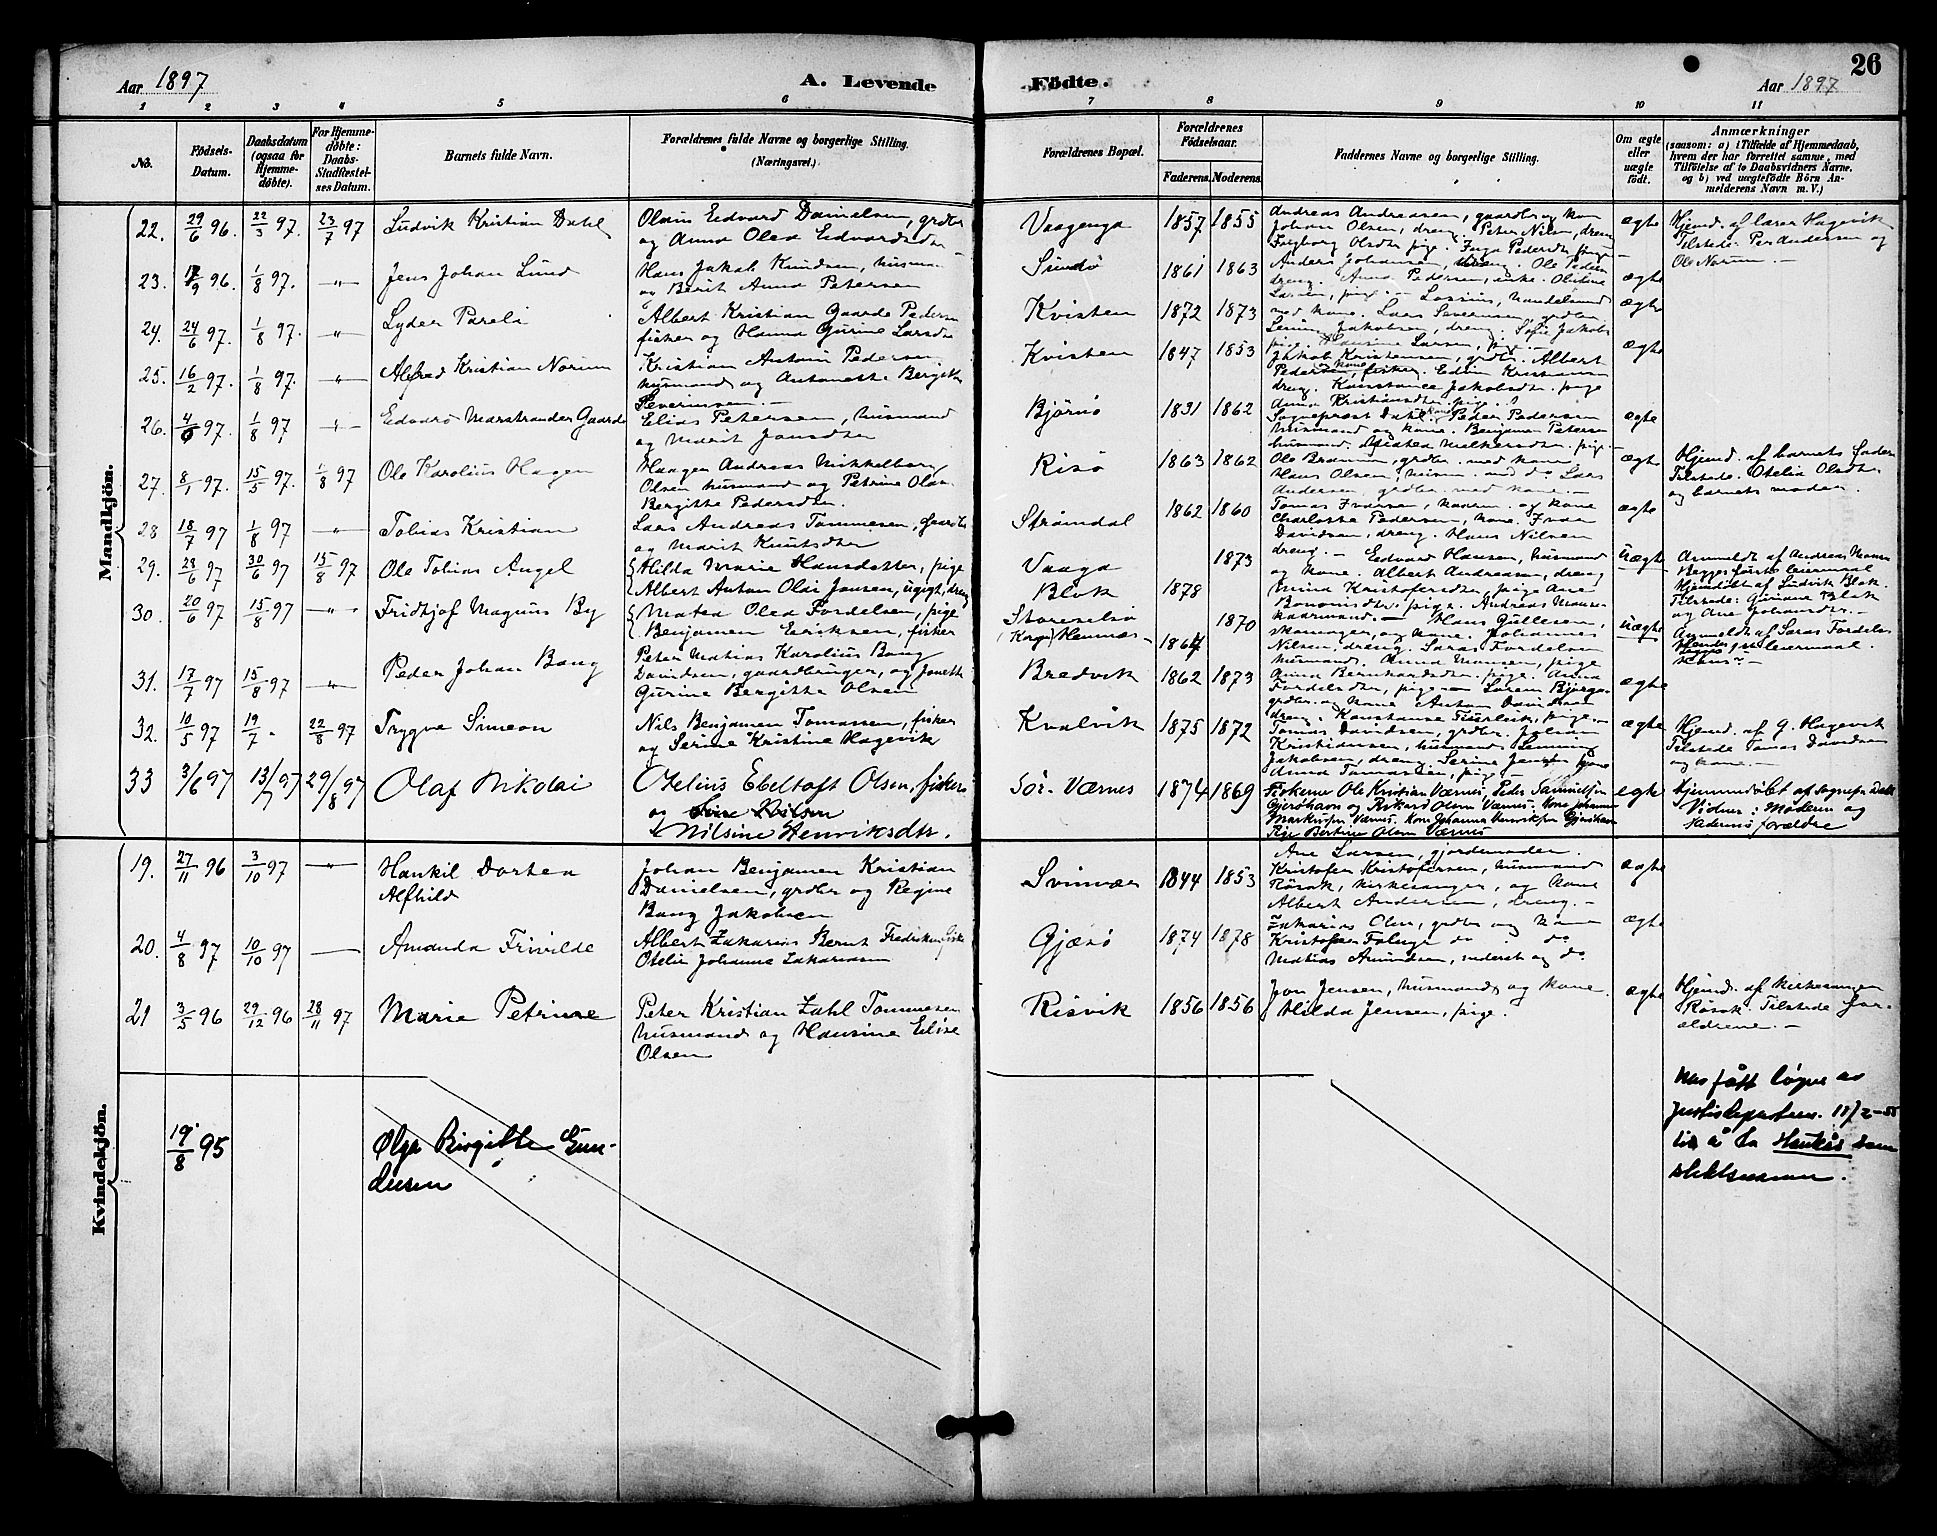 Aar 1897
A. Levende
Födte.
Aar 1897
26
1 2 3 4 5 6 7 8 9 10 11
No.
Födsels-
Datum.
Daabsdatum
(ogsaa for
Hjemme-
døbte).
For Hjemme-
døbte:
Daabs-
Stadfæstel-
ses Datum.
Barnets fulde Navn.
Forældrenes fulde Navne og borgerlige Stilling.
(Næringsvei.)
Forældrenes Bopæl.
Forældrenes
Födselsaar.
Faderens. Moderens.
Faddernes Navne og borgerlige Stilling.
Om ægte
eller
uægte
födt.
Anmærkninger
(saasom: a) i Tilfælde af Hjemmedaab,
hvem der har forrettet samme, med
Tilföielse af to Daabsvidners Navne,
og b) ved uægtefödte Börn An-
melderens Navn m. V.)
Mandkjön.
22. 29/6 96. 22/3 97. 23/7 97 Ludvik Kristian Dahl
Olaus Edvard Danielsen, grdbr
og Anna Olea Edvardsdtr
Vaagenga 1857 1855
Andreas Andreassen, gaardbr og kone
Johan Olsen, dreng. Peter Nilsen, dreng
Ingborg Olsdtr pige. Inga Pedersdtr pige
ægte
Hjemd. af lærer Hagevik
Tilstede: Per Andersen og
Ole Norum. —
23. 96. 1/8 97. —"— Jens Johan Lund
Hans Jakob Knudsen, husma-
og Berit Anna Petersen
Sundö 1861 1863
Anders Johansen, dreng. Ole Peder
dreng. Anna Pedersen, enke. Olufine
Larsen, pige. —
ægte
24. 24/6 97. 1/8 97. —"— Lyder Pareli
Albert Kristian Gaarde Pedersen
fisker og Hanna Gurine Larsdtr
Kvisten 1872 1873
med kone. Lars Severinsen, grdbr.
Jakobsen, dreng. Sofie Jakobs
pige. Hansine Larsen, pige. —
ægte
25. 16/2 97. 1/8 97. —"— Alfred Kristian Norum
Kristian Antoni Pedersen
husmand og Antonette Bergitte
Severinsen. —
Kvisten 1847 1853
Jakob Kristensen, grdbr. Albert
Pedersen, fisker. Edvin Kristiansen
dreng. Konstance Jakobsdtr. pige
Anna Kristiansdtr. pige.
ægte
26. 97. 1/8 97 —"— Edvard Marstrander Gaarde
Elias Petersen, husmand
og Marit Jonsdtr
Bjørnö 1831 1862
Sogneprest Dahl. Peder Pedersen
husmand og kone. Benjamin Petersen
husmand. Melkersdtr. pige —
ægte
27. 8/1 97. 15/5 97. 1/8 97 Ole Karolius Hagen
Haagen Andreas Mikkelborg
Olsen husmand og Petrine Olava
Bergitte Pedersdtr.
Risö 1863 1862
Ole Braseth, grdbr. med kone.
Hans Olsen, husm. med do. Lars
Andersen grdbr. med kone —
ægte
Hjemd. af barnets fader
Tilstede: Otelia Olsdtr
og barnets moder.
28 18/7 97 1/8 97 —"— Tobias Kristian
Lars Andreas Tommesen, Gaardb.
og Marit Knutsdtr
Strømdal 1862 1860
Tomas Iversen, kaarm. og kone
Charlotte Pedersen, kone. Iver
Davidsen, dreng. Hans Nilsen
dreng. —
ægte
29. 23/6 97 30/6 97 15/8 97 Ole Tobias Angel
Hilda Marie Hansdatter, pige
Albert Anton Olai Jensen, ugigt, dreng
Vaaga 1873
Blok 1878
Edvard Hansen, husmand
og kone. Albert Andreasen, dreng
Mina Kristofersdtr, pige Ane
Bononisdtr. pige. Andreas Monsen
kaarmand. —
uægte
Anmeldt af Andreas Mons.
Begges første leiermaal
Hjemdöbt af Ludvik Blok.
Tilstede: Guriane Blok
og Ane Johansdtr. —
30. 20/6 97 15/8 97 —"— Fridtjof Magnus By
Matea Olea Fordelsen, pige
Benjamin Eriksen, fisker
Storeselsö 1870
(Korgen) Hemnes — 1864
Hans Gullesen,
skomager, og kone. Johannes
Nilsen, dreng. Saras Fordelsen
husmand. Anna Monsen, pige
uægte
Anmeldt af Saras Fordels.
leiermaal.
31. 17/7 97 15/8 97 —"— Peder Johan Bang
Peter Matias Karolius Bang
Davidsen, gaardbruger, og Jonette
Gurine Bergitte Olsen
Bredvik 1862 1873
Anna Bernhardsdtr. pige. Anna
Fordelsdtr, pige — Søren Bjørga-
grdbr. og kone Anton Davidsen
dreng. Konstanse pige. —
ægte
32. 10/5 97 19/7 " 22/8 97 Trygve Simeon
Nils Benjamin Tomassen, fisker
og Serine Kristine Hagevik
Kvalvik 1875 1872
Tomas Davidsen, grdbr. Johan
Kristiansen, husmand.
Jakobsen, dreng. Serine Jensen
Anna Tomassen, pige —
ægte
Hjemd. af G. Hagevik
Tilstede Tomas Davidsen
og kone. —
33 3/6 97 13/7 97 29/8 97 Olaf Nikolai
Otelius Ebeltoft Olsen, fisker
og
Nilsine Henriksdtr.
Sör-Værnes 1874 1869
Fiskerne Ole Kristian Værnes, Peder Samuelsen
Gjershavn og Rikard Olsen Værnes. Kone Johanna
Markussen Værnes. Kone Johanna Henriksen Gjershavn
Pige Bertine Olsen Værnes
egte
Hjemmedøbt af sognepr. Dahl
Vidner: Moderen og
faderens forældre
Kvindekjön.
19. 27/11 96 3/10 97 —"— Hankil Dortea
Alfhild
Johan Benjamen Kristian
Danielsen, grdbr og Regine
Bang Jakobsen
Svinvær 1844 1853
Ane Larsen, gjordemoder.
Kristofer Kristofersen, husmand
Røsok, kirkesanger, og kone
Albert Andersen, dreng. —
ægte
20. 4/8 97 10/10 97 — Amanda Frivilde
Albert Zakarias Bernt Fredriksen, fisk
Otelie Johanne Zakariasen
Gjæsö 1874 1878
Zakarias Olsen, grdbr og kone
Kristoffer do do
Matias Amundsen, inderst og do
ægte
21 3/5 96 29/12 96 28/11 97 Marie Petrine
Peter Kristian Zahl Tommesen
husmand og Hansine Elise
Olsen
Risvik 1856 1856
Jon Jensen, husmand, og kone.
Hilda Jensen, pige.
ægte
Hjemd. af kirkesanger
Røsok. Tilstede for-
ældrene. —
19/8 95
Olga Birgitte Gun-
dersen
Har fått løyve av
Justisdepartem. 18/2-55
til å ta som
slektsnamn.